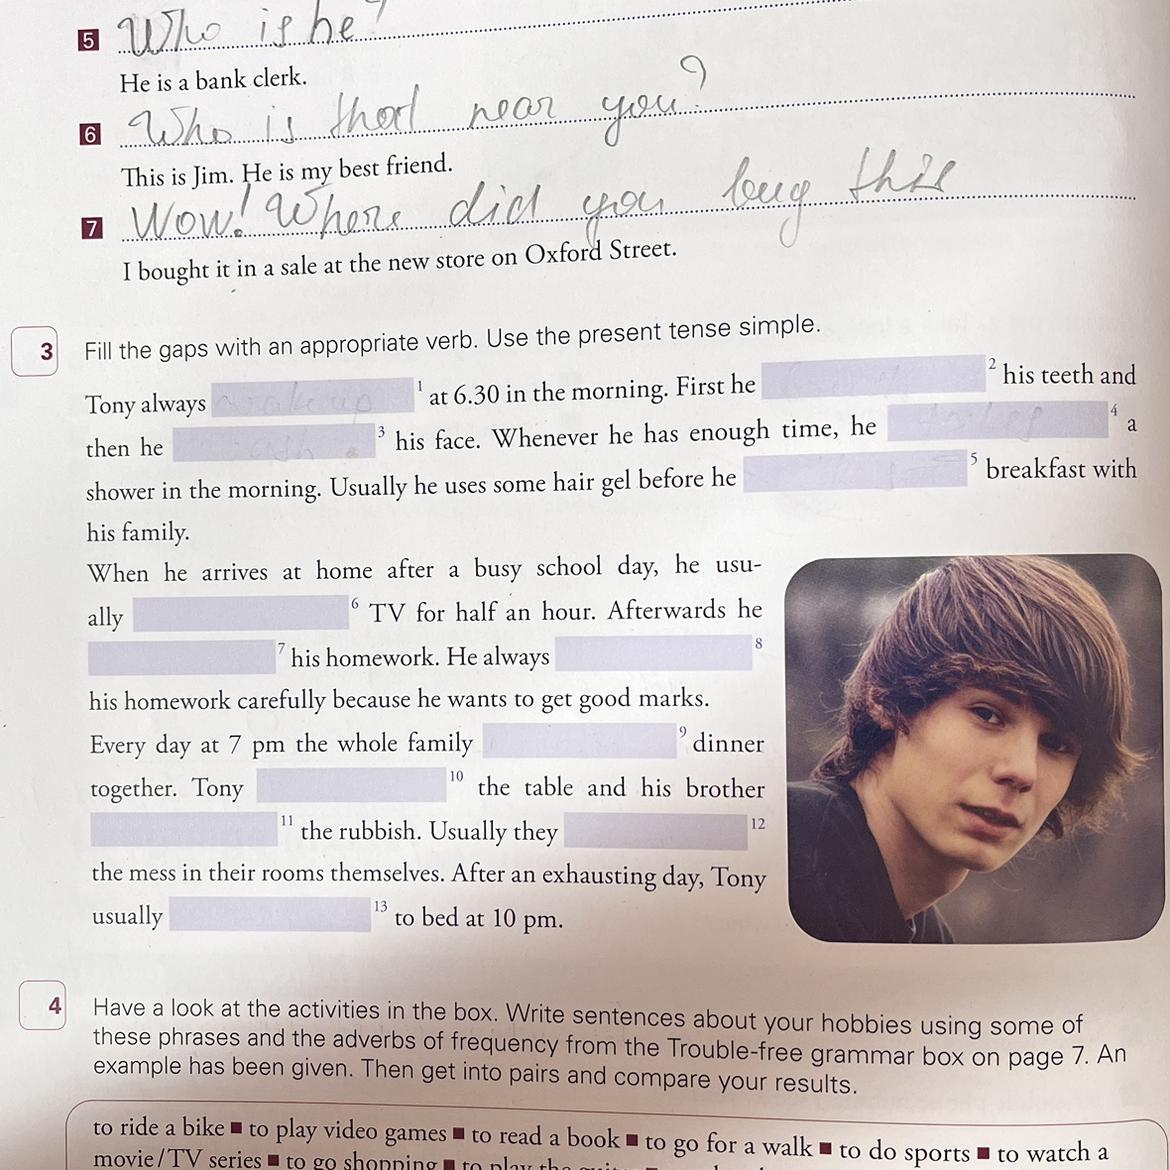 5 Who is he?
He is a bank clerk.
6 Who is that near you?
This is Jim. He is my best friend.
7 Wow! Where did you buy this
I bought it in a sale at the new store on Oxford Street.
3 Fill the gaps with an appropriate verb. Use the present tense simple.
Tony always wake up 1 at 6.30 in the morning. First he 2 his teeth and
then he 3 his face. Whenever he has enough time, he 4 a
shower in the morning. Usually he uses some hair gel before he 5 breakfast with
his family.
When he arrives at home after a busy school day, he usu-
ally 6 TV for half an hour. Afterwards he
7 his homework. He always 8
his homework carefully because he wants to get good marks.
Every day at 7 pm the whole family 9 dinner
together. Tony 10 the table and his brother
11 the rubbish. Usually they 12
the mess in their rooms themselves. After an exhausting day, Tony
usually 13 to bed at 10 pm.
4 Have a look at the activities in the box. Write sentences about your hobbies using some of
these phrases and the adverbs of frequency from the Trouble-free grammar box on page 7. An
example has been given. Then get into pairs and compare your results.
to ride a bike ■ to play video games ■ to read a book ■ to go for a walk ■ to do sports ■ to watch a
movie/TV series ■ to go shopping ■ to play the